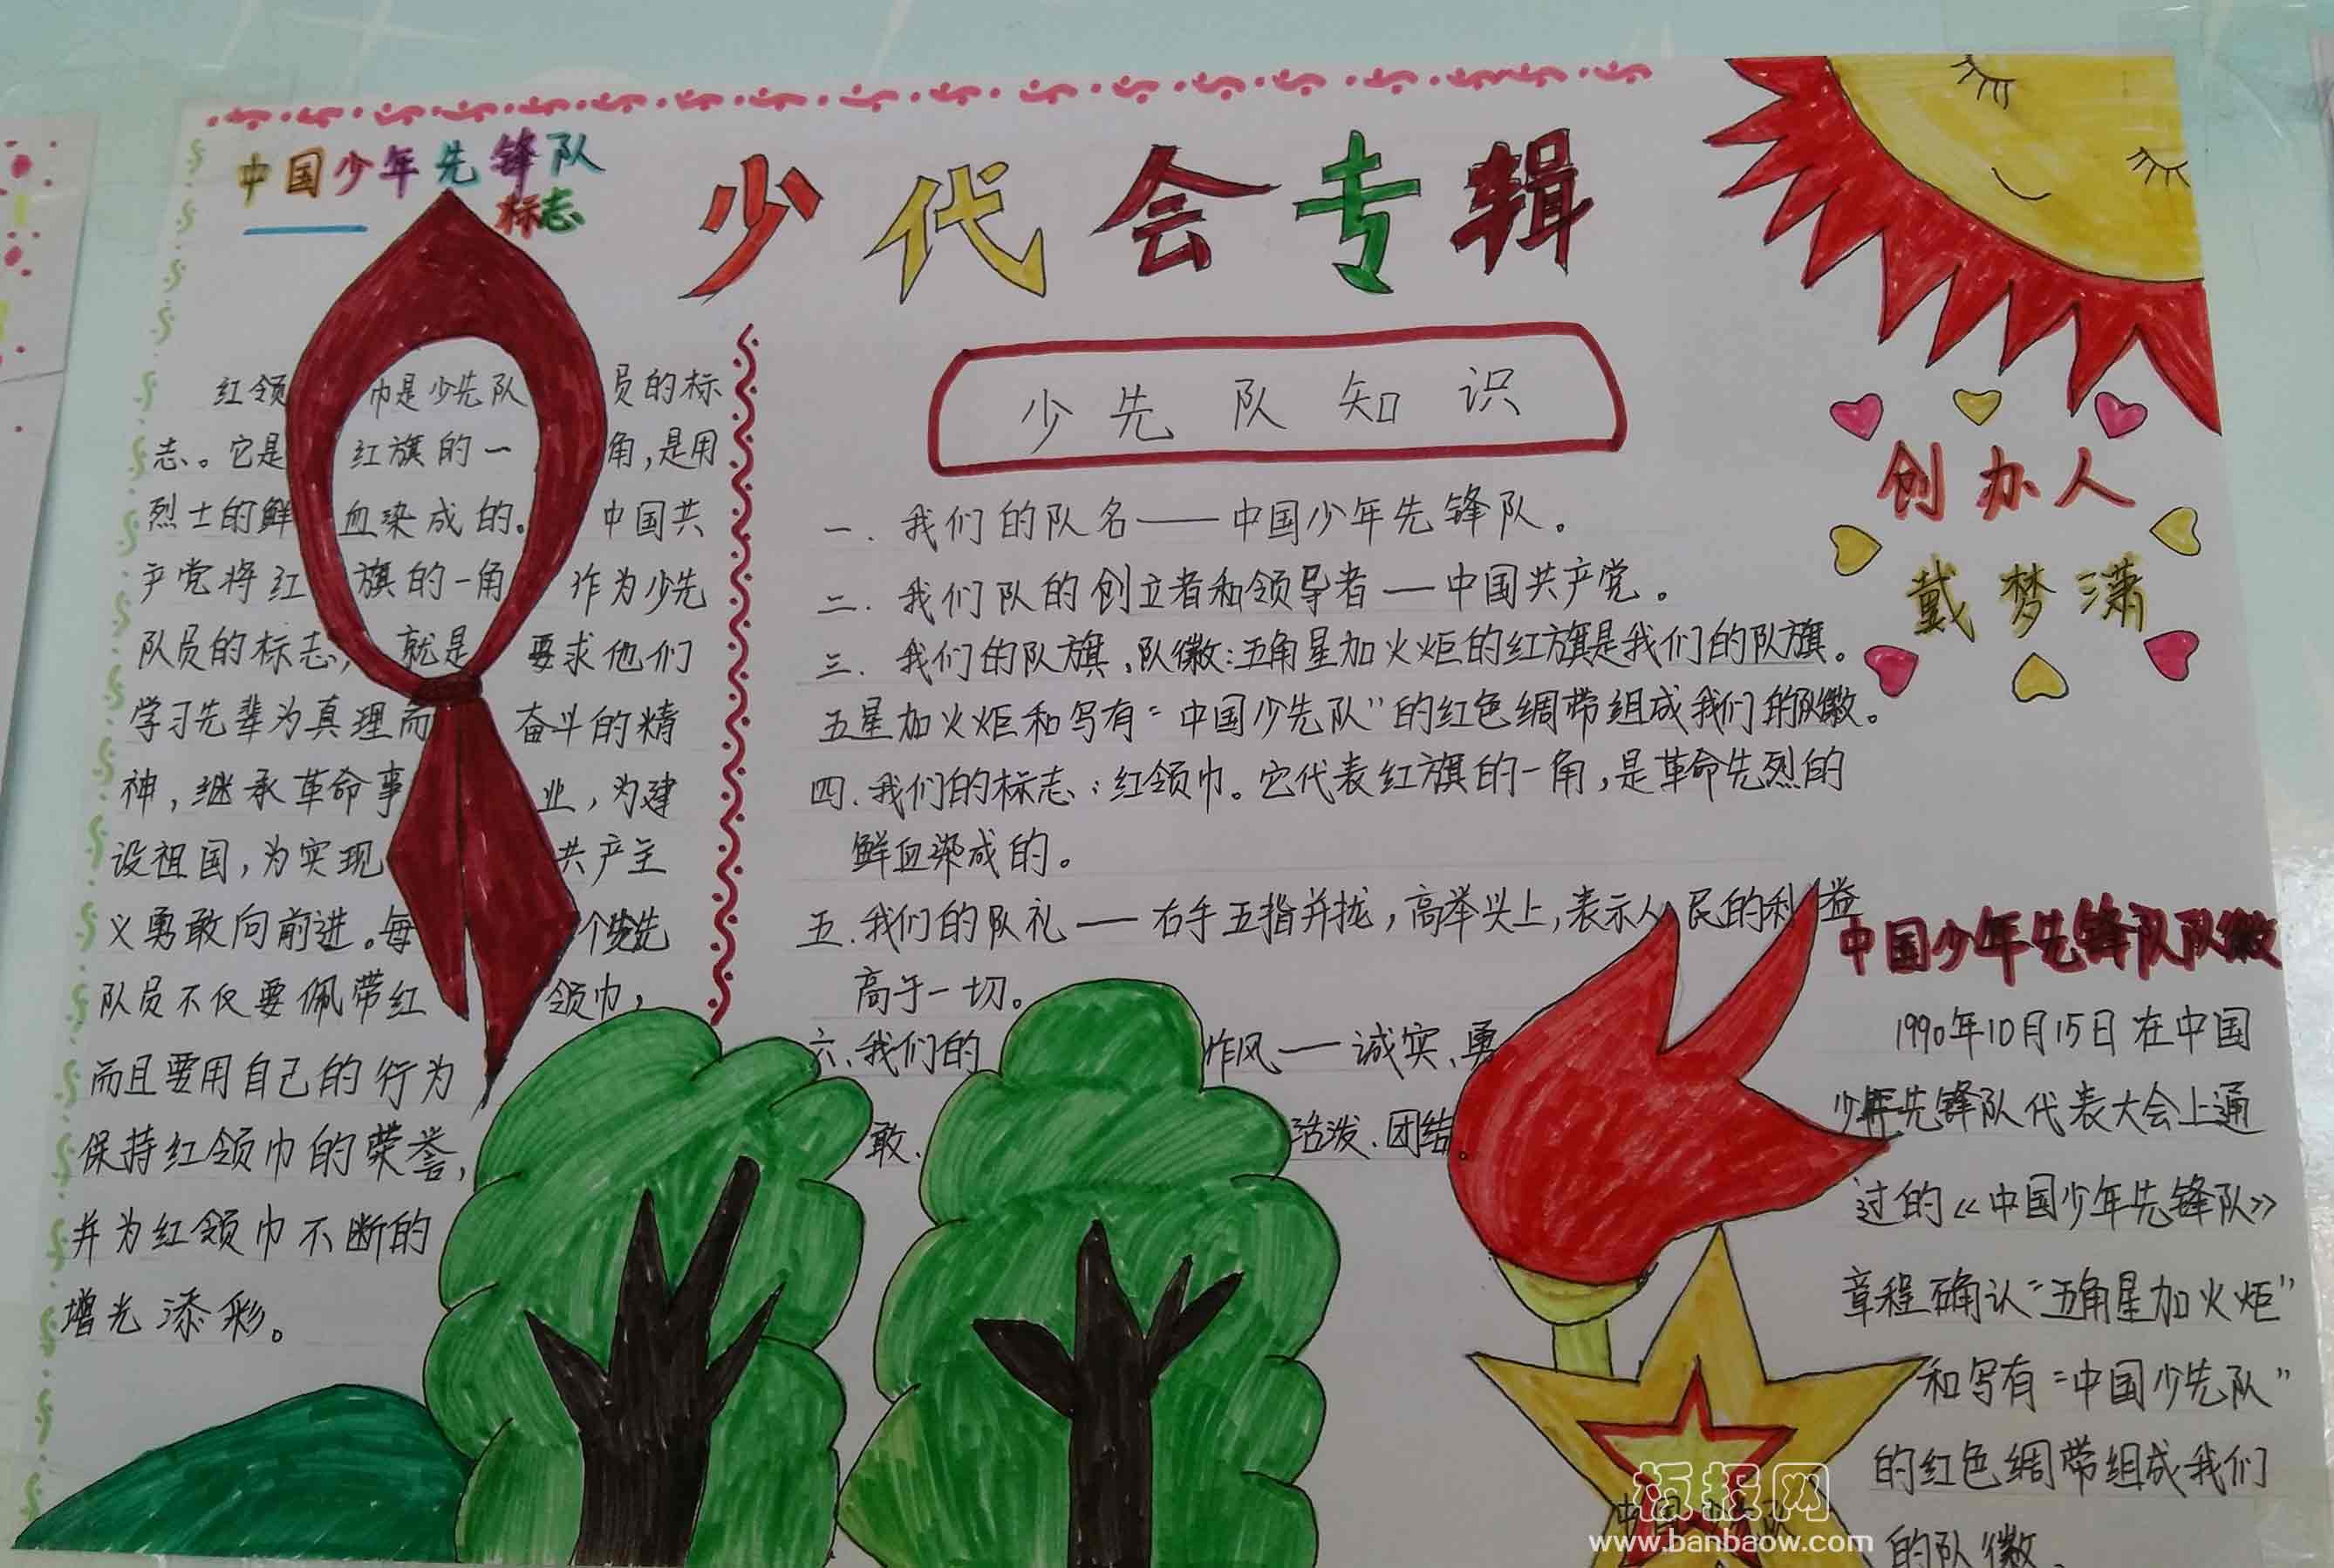 中国少年先锋队
标志
少代会专辑
红领巾是少先队员的标
志。它是红旗的一角,是用
烈士的鲜血染成的。中国共
产党将红旗的一角作为少先
队员的标志,就是要求他们
学习先辈为真理而奋斗的精
神,继承革命事业,为建
设祖国,为实现共产主
义勇敢向前进。每个先
队员不仅要佩带红领巾,
而且要用自己的行为
保持红领巾的荣誉,
并为红领巾不断的
增光添彩。
少先队知识
一.我们的队名——中国少年先锋队。
二.我们队的创立者和领导者—中国共产党。
三.我们的队旗、队徽:五角星加火炬的红旗是我们的队旗。
五星加火炬和写有“中国少先队”的红色绸带组成我们的队徽。
四.我们的标志:红领巾。它代表红旗的一角,是革命先烈的
鲜血染成的。
五.我们的队礼—右手五指并拢,高举头上,表示人民的利益
高于一切。
六、我们的作风—诚实、勇
敢、活泼、团结
创办人
戴梦潇
中国少年先锋队队徽
1990年10月15日在中国
少年先锋队代表大会上通
过的《中国少年先锋队》
章程确认“五角星加火炬”
和写有“中国少先队”
的红色绸带组成我们
的队徽.
板报网
www.banbaow.com